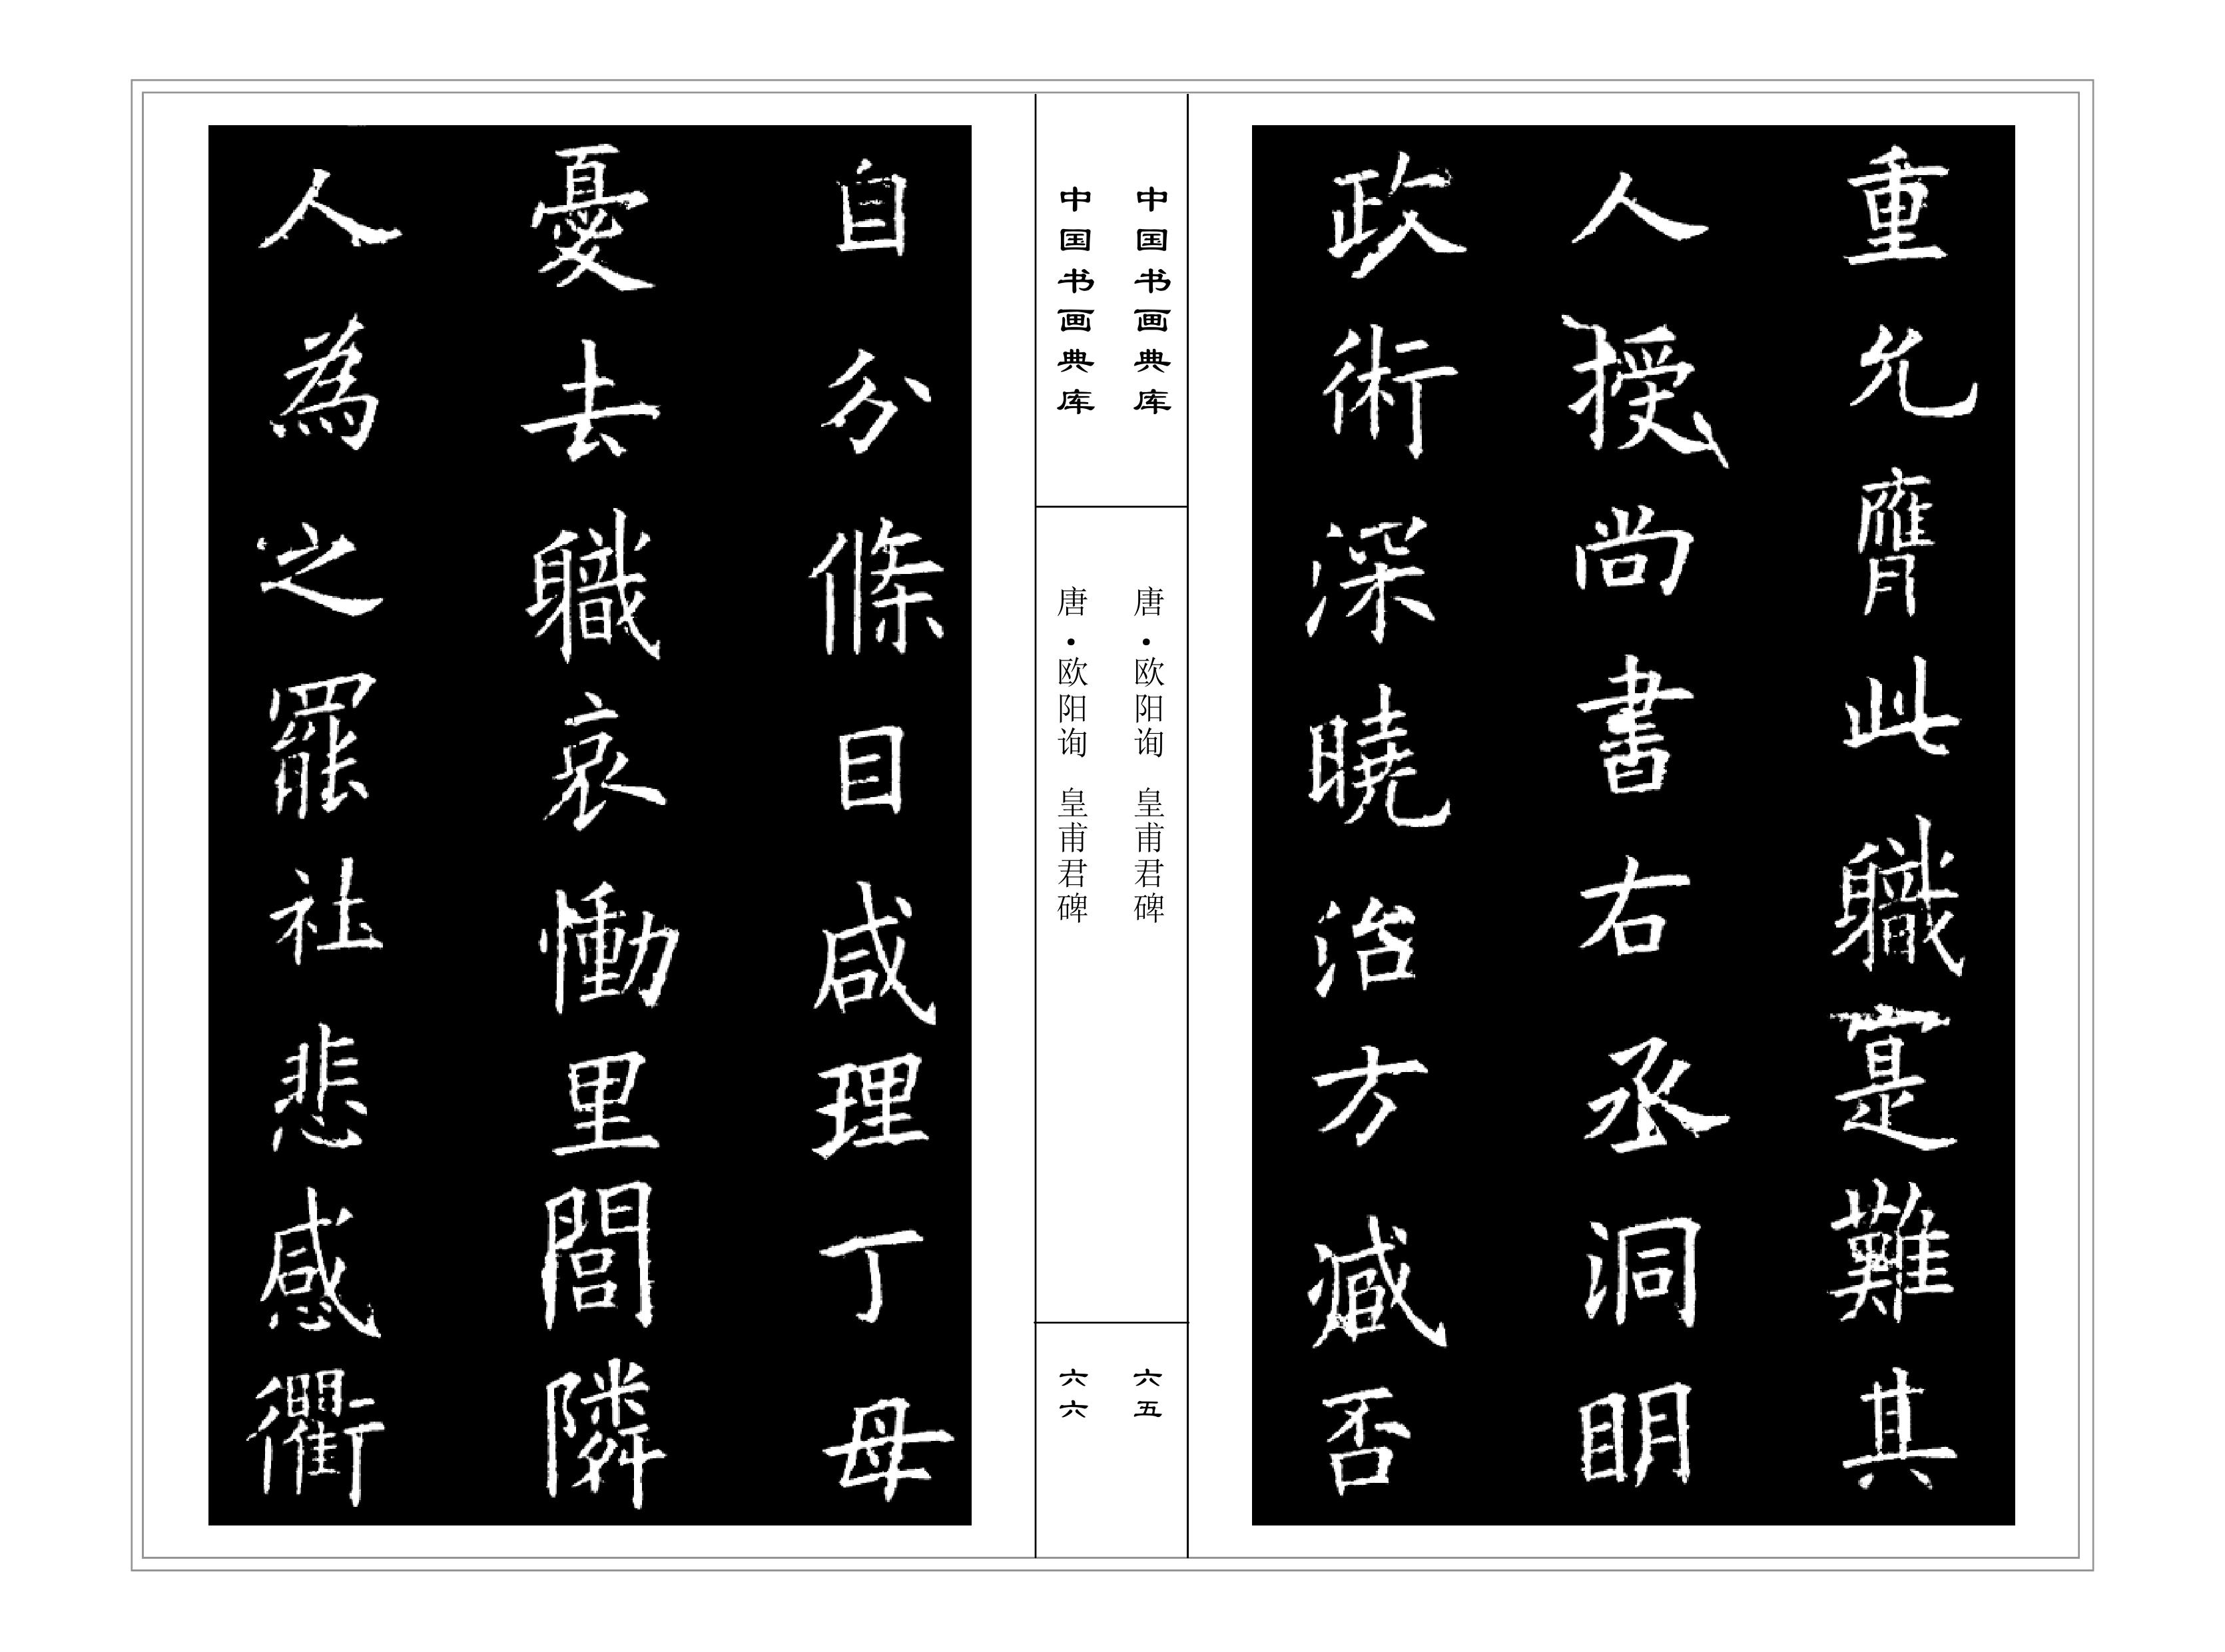 重允膺此職寔難其
人授尚書右丞洞明
政術深曉治方臧否
中国书画典库
唐·欧阳询 皇甫君碑
六五
中国书画典库
唐·欧阳询 皇甫君碑
六六
自分條目咸理丁母
憂去職哀慟里閭隣
人為之罷社悲感衢